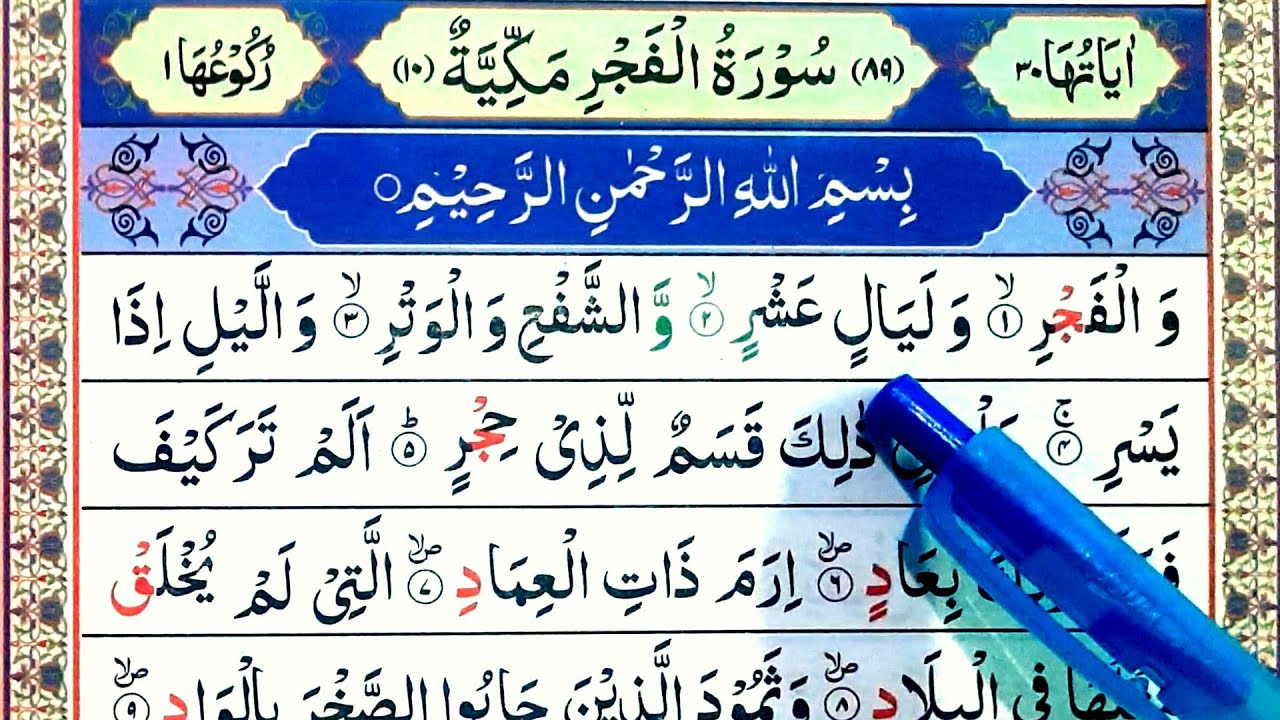 اٰيَاتُهَا ٣٠ (٨٩) سُوْرَةُ الْفَجْرِ مَكِّيَّةٌ (١٠) رُكُوْعُهَا ١
بِسْمِ اللّٰهِ الرَّحْمٰنِ الرَّحِيْمِ ○
وَ الْفَجْرِ ۙ﴿١﴾ وَ لَيَالٍ عَشْرٍ ۙ﴿٢﴾ وَّ الشَّفْعِ وَ الْوَتْرِ ۙ﴿٣﴾ وَ الَّيْلِ اِذَا
يَسْرِ ۚ﴿٤﴾ ذٰلِكَ قَسَمٌ لِّذِیْ حِجْرٍ ؕ﴿٥﴾ اَلَمْ تَرَ كَيْفَ
بِعَادٍ ۪ۙ﴿٦﴾ اِرَمَ ذَاتِ الْعِمَادِ ۪ۙ﴿٧﴾ الَّتِیْ لَمْ يُخْلَقْ
فِی الْبِلَادِ ۪ۙ﴿٨﴾ وَ ثَمُوْدَ الَّذِيْنَ جَابُوا الصَّخْرَ بِالْوَادِ ۪ۙ﴿٩﴾